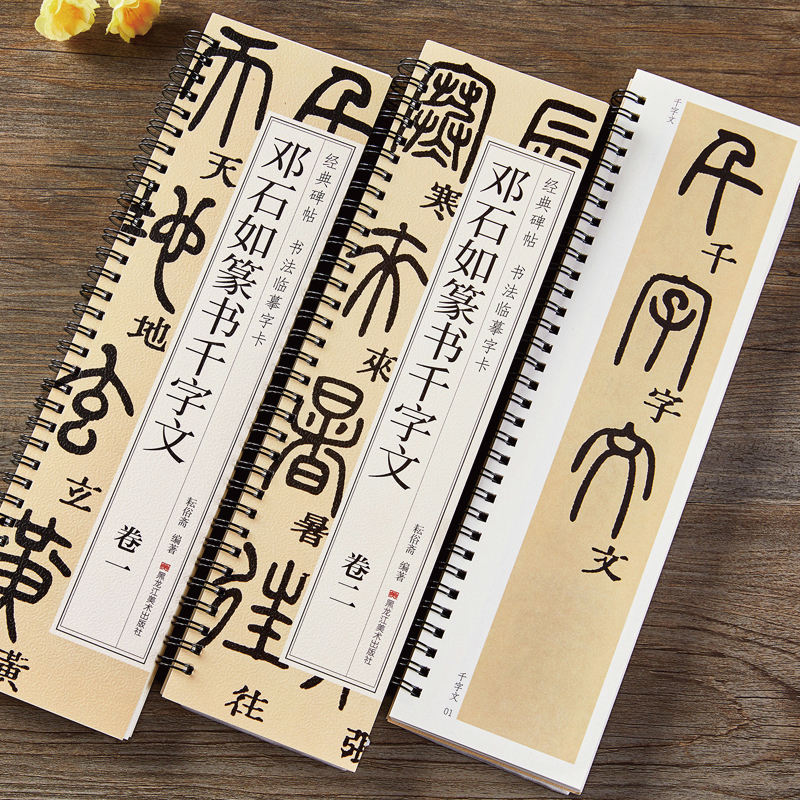 天
天
地
地
玄
玄
黃
黃
千
经典碑帖 书法临摹字卡
邓石如篆书千字文
卷一
耘俗斋 编著
黑龙江美术出版社
寒
寒
來
來
暑
暑
往
往
辰
張
经典碑帖 书法临摹字卡
邓石如篆书千字文
卷二
耘俗斋 编著
黑龙江美术出版社
千字文
千
千
字
字
文
文
千字文
01